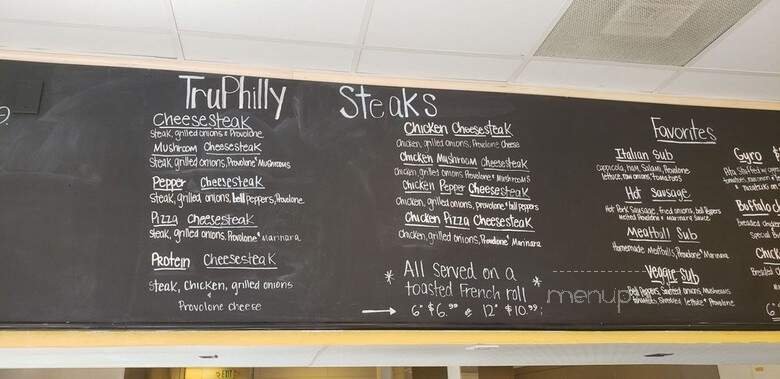 TruPhilly Steaks
Cheesesteak
Steak, grilled onions & Provolone
Mushroom Cheesesteak
Steak, grilled onions, Provolone & Mushrooms
Pepper Cheesesteak
Steak, grilled onions, bell peppers, Provolone
Pizza Cheesesteak
Steak, grilled onions, Provolone & Marinara
Protein Cheesesteak
Steak, Chicken, grilled onions
&
Provolone cheese
Chicken Cheesesteak
Chicken, grilled onions, Provolone Cheese
Chicken Mushroom Cheesesteak
Chicken, grilled onions Provolone & Mushrooms
Chicken Pepper Cheesesteak
Chicken, grilled onions, provolone & bell peppers
Chicken Pizza Cheesesteak
Chicken, grilled onions, Provolone & Marinara
* All Served on a *
toasted French roll
6" $6.99 & 12" $10.99
Favorites
Italian Sub
Cappicola, ham, Salami, Provolone
lettuce, raw onions, tomatoes
Hot Sausage
Hot Pork Sausage, fried onions, bell Peppers
Melted Provolone & Marinara Sauce
Meatball Sub
Homemade Meatballs, Provolone & Marinara
Veggie Sub
Bell Peppers, Sauteed onions, Mushrooms
tomatoes, Shredded lettuce & Provolone
Gyro
Pita
Buffalo
Breaded
Special
Chick
Breaded
6
menup